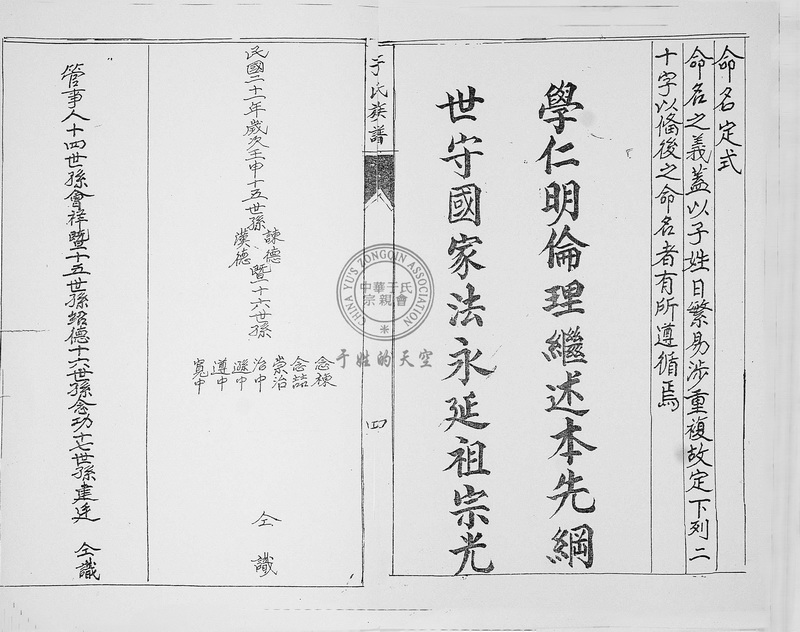 命名定式
命名之義蓋以子姓日繁易涉重複故定下列二
十字以備後之命名者有所遵循焉
學仁明倫理繼述本先綱
世守國家法永延祖宗光
于氏族譜
四
民國二十一年歲次壬申十五世孫諫德漢德暨十六世孫
念棟
念喆
崇治
治中
遜中
遵中
寬中
仝識
管事人十四世孫會祥暨十五世孫紹德十六世孫念功十七世孫建廷 仝識
CHINA YU'S ZONGQIN ASSOCIATION
中華于氏
宗親會
于姓的天空